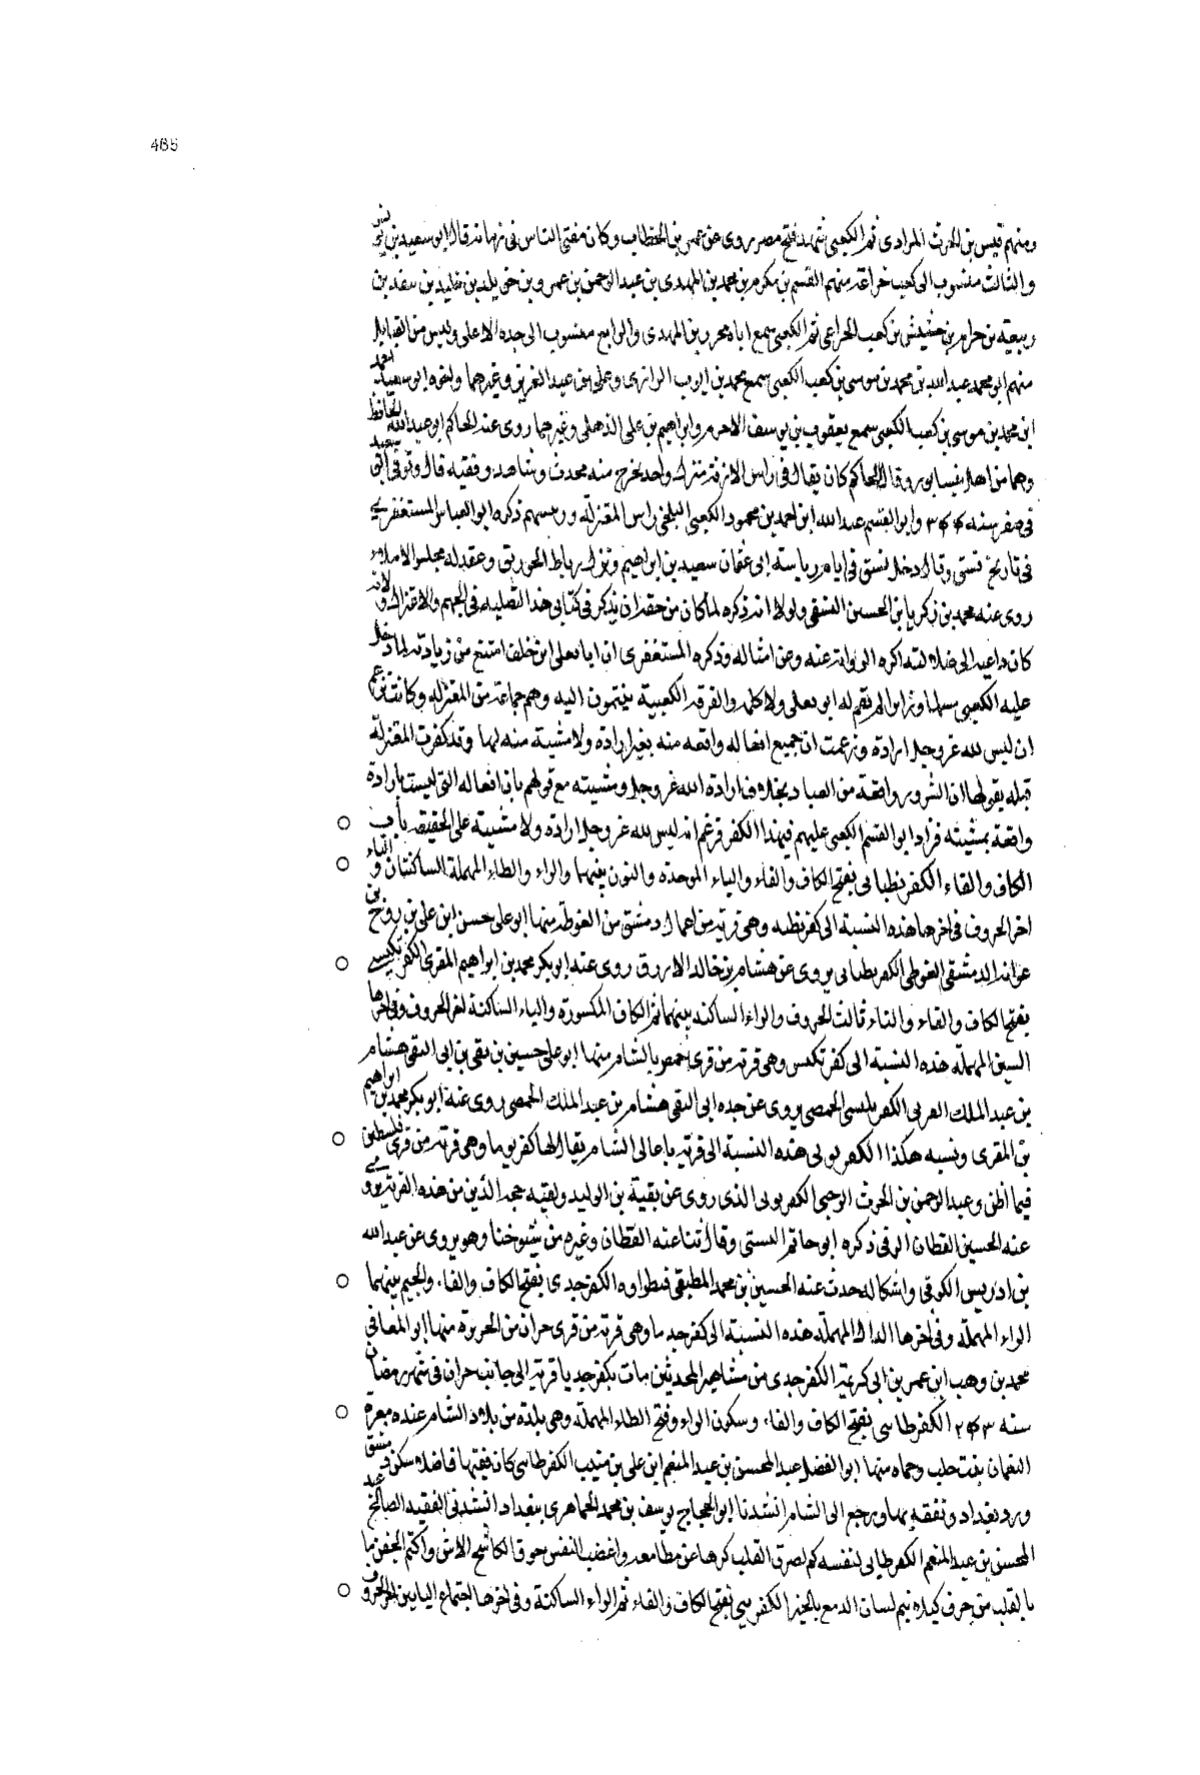 465
ومنهم قيس بن الحرث المرادى ثم الكعبى شهد فتح مصر يروى عن عمر بن الخطاب وكان مفتى الناس فى زمانه قال ابو سعيد بن يونس
والثالث منسوب الى كعب خزاعة منهم القسم بن مكرم بن محمد بن المهدى بن عبد الرحمن بن عمرو بن خويلد بن خليد بن منقذ بن
ربيعة بن حرام بن حبيش بن كعب الخزاعى ثم الكعبى سمع اباه محرز بن المهدى والرابع منسوب الى جده الاعلى وليس من القبايل
منهم ابو محمد عبد الله بن محمد بن موسى بن كعب الكعبى سمع محمد بن ايوب الرازى وعلى بن عبد العزيز وغيرهما واخوه ابو سعيد احمد
ابن محمد بن موسى بن كعب الكعبى سمع يعقوب بن يوسف الاخرم وابراهيم بن على الذهلى وغيرهما روى عنه الحاكم ابو عبد الله الحافظ
وهما من اهل نيسابور وقال الحاكم كان يقال فى راس الازقة منزل واحد يخرج منه محدث وشاهد وفقيه قال وتوفى ابو سعيد
فى صفر سنه ٣٤٤ وابو القسم عبد الله ابن احمد بن محمود الكعبى البلخى راس المعتزلة ورييسهم ذكره ابو العباس المستغفرى
فى تاريخ نسف وقال دخل نسف فى ايام رياسة ابى عثمان سعيد بن ابراهيم ونزل رباط الجوبق وعقد له مجلس الاملاء
روى عنه محمد بن زكريا بن الحسين النسفى ولولا انه ذكره لما كان من حقه ان يذكر فى كتابى هذا لتصلبه فى التجهم والاعتزال ولانه
كان داعية الى ضلالته اكره الرواية عنه وعن امثاله وذكره المستغفرى ان ابا يعلى ابن خلف امتنع من زيارته لما دخل
عليه الكعبى مسلما وزايرا لم يقم له ابو يعلى ولا كلمه والفرقة الكعبية ينتمون اليه وهم جماعة من المعتزله وكانت تزعم
ان ليس لله عز وجل ارادة وزعمت ان جميع افعاله واقعه منه بغير ارادة ولا مشية منه لها وقد كفرت المعتزلة
قبله بقولها ان الشرور واقعة من العباد بخلاف ارادة الله عز وجل ومشيته مع قولهم بان افعاله التى ليست بارادة
واقعة بمشيته فزاد ابو القسم الكعبى عليهم فى هذا الكفر فزعم انه ليس لله عز وجل ارادة ولا مشية على الحقيقه باب
الكاف والفاء الكفر بطنانى بفتح الكاف والفاء والباء الموحدة والنون بينهما والراء والطاء المهملة الساكنتان والياء
اخر الحروف فى اخرها هذه النسبة الى كفر بطنه وهى قرية من اعمال دمشق من الغوطة منها ابو على حسن ابن على بن روح بن
عوانه الدمشقى الغوطى الكفر بطنانى يروى عن هشام بن خالد الازرق روى عنه ابو بكر محمد بن ابراهيم المقرى الكفرتكيسى
بفتح الكاف والفاء والتاء ثالث الحروف والراء الساكنه بينهما ثم الكاف المكسورة والياء الساكنة اخر الحروف وفى اخرها
السين المهملة هذه النسبة الى كفر تكيس وهى قرية من قرى حمص بالشام منها ابو على حسين بن تقى بن ابى التقى هشام
بن عبد الملك العربى الكفر يلبسى الحمصى يروى عن جده ابى التقى هشام بن عبد الملك الحمصى روى عنه ابو بكر محمد بن ابراهيم
بن المقرى ونسبه هكذا الكفر بولى هذه النسبة الى قرية باعالى الشام يقال لها كفر يوما وهى قرية من قرى فلسطين
فيما اظن وعبد الرحمن بن الحرث الرحبى الكفر بولى الذى روى عن بقية بن الوليد وبقيه جحد الذين من هذه القرية يروى
عنه الحسين القطان الرقى ذكره ابو حاتم البستى وقال ثنا عنه القطان وغيره من شيوخنا وهو يروى عن عبد الله
بن ادريس الكوفى واشكاله حدث عنه الحسين بن محمد المطبقى فيطراوه الكفرجدى بفتح الكاف والفاء والجيم بينهما
الراء المهملة وفى اخرها الدال المهملة هذه النسبة الى كفر جديا وهى قرية من قرى حران من الجزيرة منها ابو المعافى
محمد بن وهب ابن عمر بن ابى كريمة الكفرجدى من مشاهير المحدثين مات بكفر جديا قرية الى جانب حران فى شهر رمضان
سنه ٢٤٣ الكفرطابى بفتح الكاف والفاء وسكون الراء وفتح الطاء المهملة وهى بلدة من بلاد الشام عنده معرة
النعمان بين حلب وحماه منها ابو الفضل عبد المحسن بن عبد المنعم ابن على بن منيب الكفرطابى كان فقيها فاضلا سكن دمشق
ورد بغداد وتفقه بها ورجع الى الشام انشدنا ابو الحجاج يوسف بن محمد الجماهرى ببغداد انشدنى الفقيه الصالح عبد
المحسن بن عبد المنعم الكفرطابى لنفسه كم اصرف القلب كرها عن مطامعه واغضب النفس خوف الكاشح الاشر واكتم الجفن ما
بالقلب من حرق كيلا ينم لسان الدمع بالخبر الكفريى بفتح الكاف والفاء ثم الراء الساكنة وفى اخرها اجتماع اليايين اخر الحروف